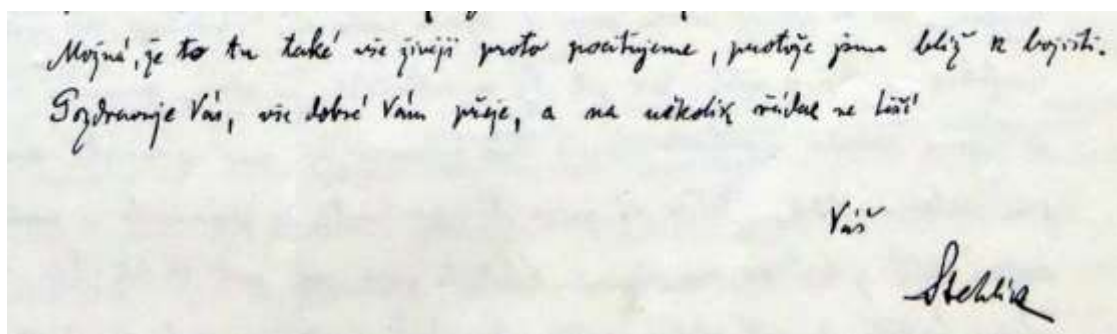 Možná, že to tu také vše živěji proto pociťujeme, protože jsme blíž k bojišti.
Pozdravuje Vás, vše dobré Vám přeje, a na několik řádek se těší
Váš
Stehlík